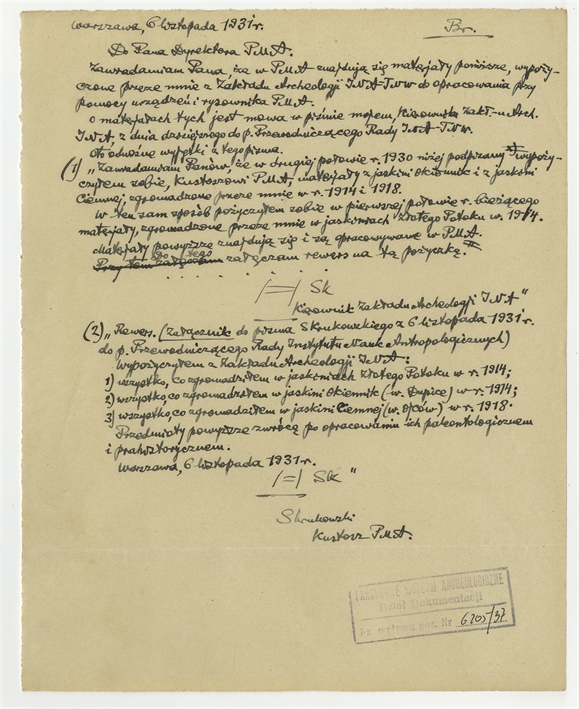 Warszawa, 6 listopada 1931 r.
Br.
Do Pana Dyrektora P.M.A.
Zawiadamiam Pana, że w P.M.A znajdują się materjały poniższe, wypoży-
czone przeze mnie z Zakładu Archeologji I.N.A-T.N.W do opracowania przy
pomocy urządzeń i rysownika P.M.A.
O materjałach tych jest mowa w piśmie mojem, Kierownika Zakł-u Arch.
I.N.A, z dnia dzisiejszego do p. Przewodniczącego Rady I.N.A-T.N.W.
Oto odnośne wyjątki z tego pisma.
(1) „Zawiadamiam Panów, że w drugiej połowie r. 1930 niżej podpisany wypoży-
czyłem sobie, Kustoszowi P.M.A, materjały z jaskini Okiennik i z jaskini
Ciemnej, zgromadzone przeze mnie w r. 1914 i 1918.
W ten sam sposób pożyczyłem sobie w pierwszej połowie r. bieżącego
materjały, zgromadzone przeze mnie w jaskiniach Złotego Potoku w r. 1914.
Materjały powyższe znajdują się i są opracowywane w P.M.A.
Do tego
Przy tem załączam załączam rewers na tą pożyczkę.
/=/ Sk
Kierownik Zakładu Archeologji I.N.A"
(2) „Rewers. (Załącznik do pisma Skrukowskiego z 6 listopada 1931 r.
do p. Przewodniczącego Rady Instytutu Nauk Antropologicznych)
Wypożyczyłem z Zakładu Archeologji I.N.A:
1) wszystko, co zgromadziłem w jaskiniach Złotego Potoku w r. 1914;
2) wszystko, co zgromadziłem w jaskini Okiennik (w. Dupice) w r. 1914;
3) wszystko, co zgromadziłem w jaskini Ciemnej (w. Ojców) w r. 1918.
Przedmioty powyższe zwrócę po opracowaniu ich paleontologicznem
i prahistorycznem.
Warszawa, 6 listopada 1931 r.
/=/ Sk "
Skrukowski
Kustosz P.M.A.
PAŃSTWOWE MUZEUM ARCHEOLOGICZNE
Dział Dokumentacji
Ks. wpływu poz. Nr 6205/37